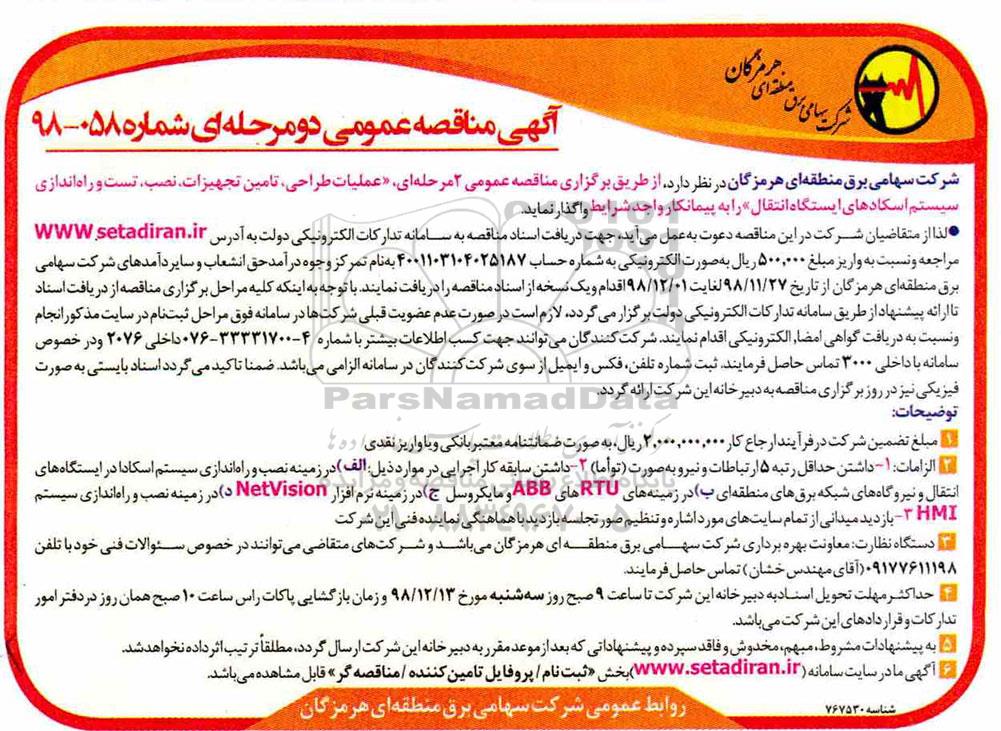 شرکت سهامی برق منطقه‌ای هرمزگان
آگهی مناقصه عمومی دو مرحله‌ای شماره ۰۵۸-۹۸
شرکت سهامی برق منطقه‌ای هرمزگان در نظر دارد، از طریق برگزاری مناقصه عمومی ۲ مرحله‌ای، «عملیات طراحی، تامین تجهیزات، نصب، تست و راه‌اندازی
سیستم اسکادهای ایستگاه انتقال» را به پیمانکار واجد شرایط واگذار نماید.
●لذا از متقاضیان شرکت در این مناقصه دعوت به عمل می‌آید، جهت دریافت اسناد مناقصه به سامانه تدارکات الکترونیکی دولت به آدرس WWW.setadiran.ir
مراجعه و نسبت به واریز مبلغ ۵۰۰,۰۰۰ ریال به‌صورت الکترونیکی به شماره حساب ۴۰۰۱۱۰۳۱۰۴۰۲۵۱۸۷ به‌نام تمرکز وجوه درآمد حق انشعاب و سایر درآمدهای شرکت سهامی
برق منطقه‌ای هرمزگان از تاریخ ۹۸/۱۱/۲۷ لغایت ۹۸/۱۲/۰۱ اقدام و یک نسخه از اسناد مناقصه را دریافت نمایند. با توجه به اینکه کلیه مراحل برگزاری مناقصه از دریافت اسناد
تا ارائه پیشنهاد از طریق سامانه تدارکات الکترونیکی دولت برگزار می‌گردد، لازم است در صورت عدم عضویت قبلی شرکت‌ها در سامانه فوق مراحل ثبت‌نام در سایت مذکور انجام
ونسبت به دریافت گواهی امضاء الکترونیکی اقدام نمایند. شرکت کنندگان می‌توانند جهت کسب اطلاعات بیشتر با شماره ۴-۳۳۳۳۱۷۰۰-۰۷۶ داخلی ۲۰۷۶ و در خصوص
سامانه با داخلی ۳۰۰۰ تماس حاصل فرمایند. ثبت شماره تلفن، فکس و ایمیل از سوی شرکت کنندگان در سامانه الزامی می‌باشد. ضمنا تاکید می گردد اسناد بایستی به صورت
فیزیکی نیز در روز برگزاری مناقصه به دبیرخانه این شرکت ارائه گردد.
توضیحات:
۱ مبلغ تضمین شرکت در فرآیند ارجاع کار ۲,۰۰۰,۰۰۰,۰۰۰ ریال، به صورت ضمانتنامه معتبر بانکی و یا واریز نقدی
۲ الزامات: ۱-داشتن حداقل رتبه ۵ ارتباطات و نیرو به‌صورت (توأما) ۲-داشتن سابقه کار اجرایی در موارد ذیل: الف) در زمینه نصب و راه‌اندازی سیستم اسکادا در ایستگاه‌های
انتقال و نیروگاه‌های شبکه برق‌های منطقه‌ای ب) در زمینه‌های RTU های ABB و مایکروسل ج) در زمینه نرم افزار NetVision د) در زمینه نصب و راه‌اندازی سیستم
HMI ۳-بازدید میدانی از تمام سایت‌های مورد اشاره و تنظیم صورتجلسه بازدید با هماهنگی نماینده فنی این شرکت
۳ دستگاه نظارت: معاونت بهره برداری شرکت سهامی برق منطقه ای هرمزگان می‌باشد و شرکت‌های متقاضی می‌توانند در خصوص سئوالات فنی خود با تلفن
۰۹۱۷۷۶۱۱۱۹۸ (آقای مهندس خشان) تماس حاصل فرمایند.
۴ حداکثر مهلت تحویل اسناد به دبیرخانه این شرکت تا ساعت ۹ صبح روز سه‌شنبه مورخ ۹۸/۱۲/۱۳ و زمان بازگشایی پاکات راس ساعت ۱۰ صبح همان روز در دفتر امور
تدارکات و قراردادهای این شرکت می‌باشد.
۵ به پیشنهادات مشروط، مبهم، مخدوش و فاقد سپرده و پیشنهاداتی که بعد از موعد مقرر به دبیرخانه این شرکت ارسال گردد، مطلقاً ترتیب اثر داده نخواهد شد.
۶ آگهی ما در سایت سامانه (www.setadiran.ir) بخش «ثبت نام / پروفایل تامین کننده / مناقصه گر» قابل مشاهده می‌باشد.
شناسه ۷۶۷۵۳۰
روابط عمومی شرکت سهامی برق منطقه‌ای هرمزگان
ParsNamadData